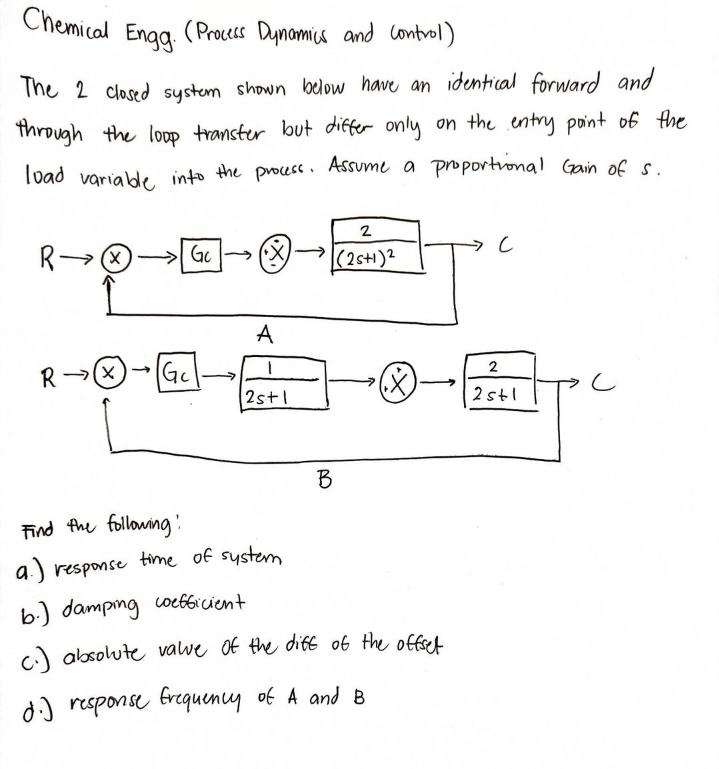 Chemical Engg. (Process Dynamics and Control)
The 2 closed system shown below have an identical forward and
through the loop transfer but differ only on the entry point of the
load variable into the process. Assume a proportional Gain of 5.
R → X → Gc → X → 2 / (2s+1)² → C
A
R → X → Gc → 1 / 2s+1 → X → 2 / 2s+1 → C
B
Find the following:
a.) response time of system
b.) damping coefficient
c.) absolute value of the diff of the offset
d.) response frequency of A and B